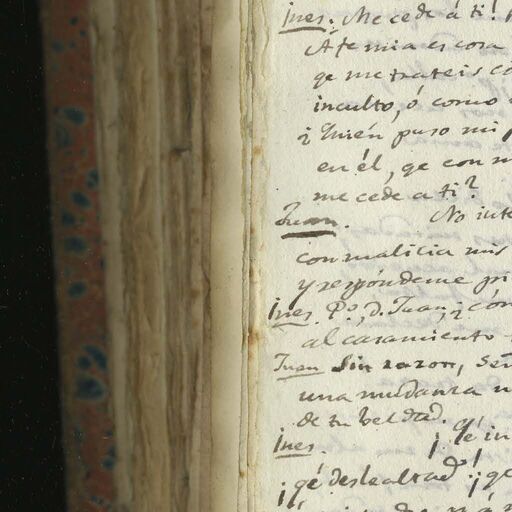 Ines. Me cede á ti!
Á fe mia es cosa
qe me trateis
inculto, ó como
¿Quién puso mi
en él, qe con
me cede a ti?
Juan. No
con malicia mis
y respóndeme
Ines. Po, D. Juan, ¿
al casamiento
Juan Sin razon,
una mudanza
de tu beldad.
Ines. ¡Qé in
¡qé deslealtad! ¡qe